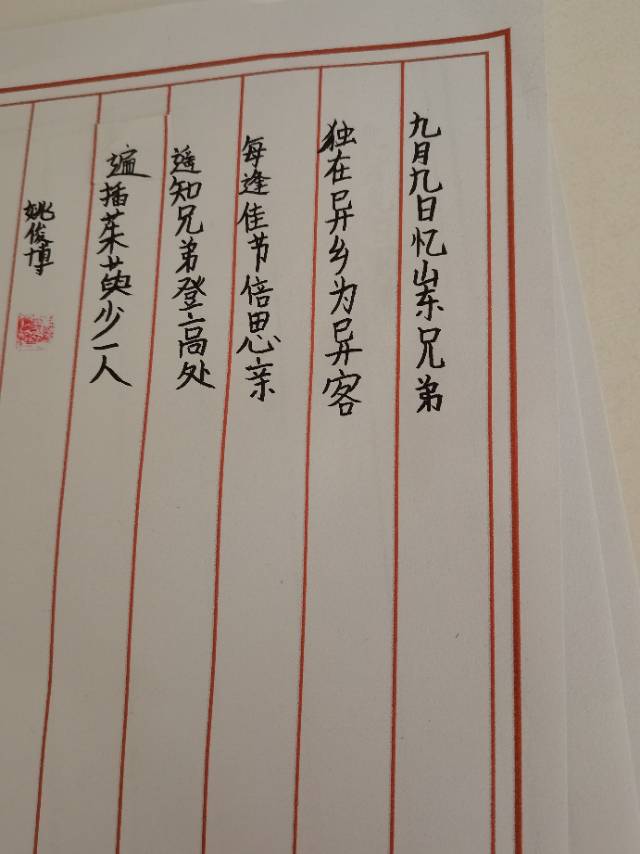 九月九日忆山东兄弟
独在异乡为异客
每逢佳节倍思亲
遥知兄弟登高处
遍插茱萸少一人
姚俊博